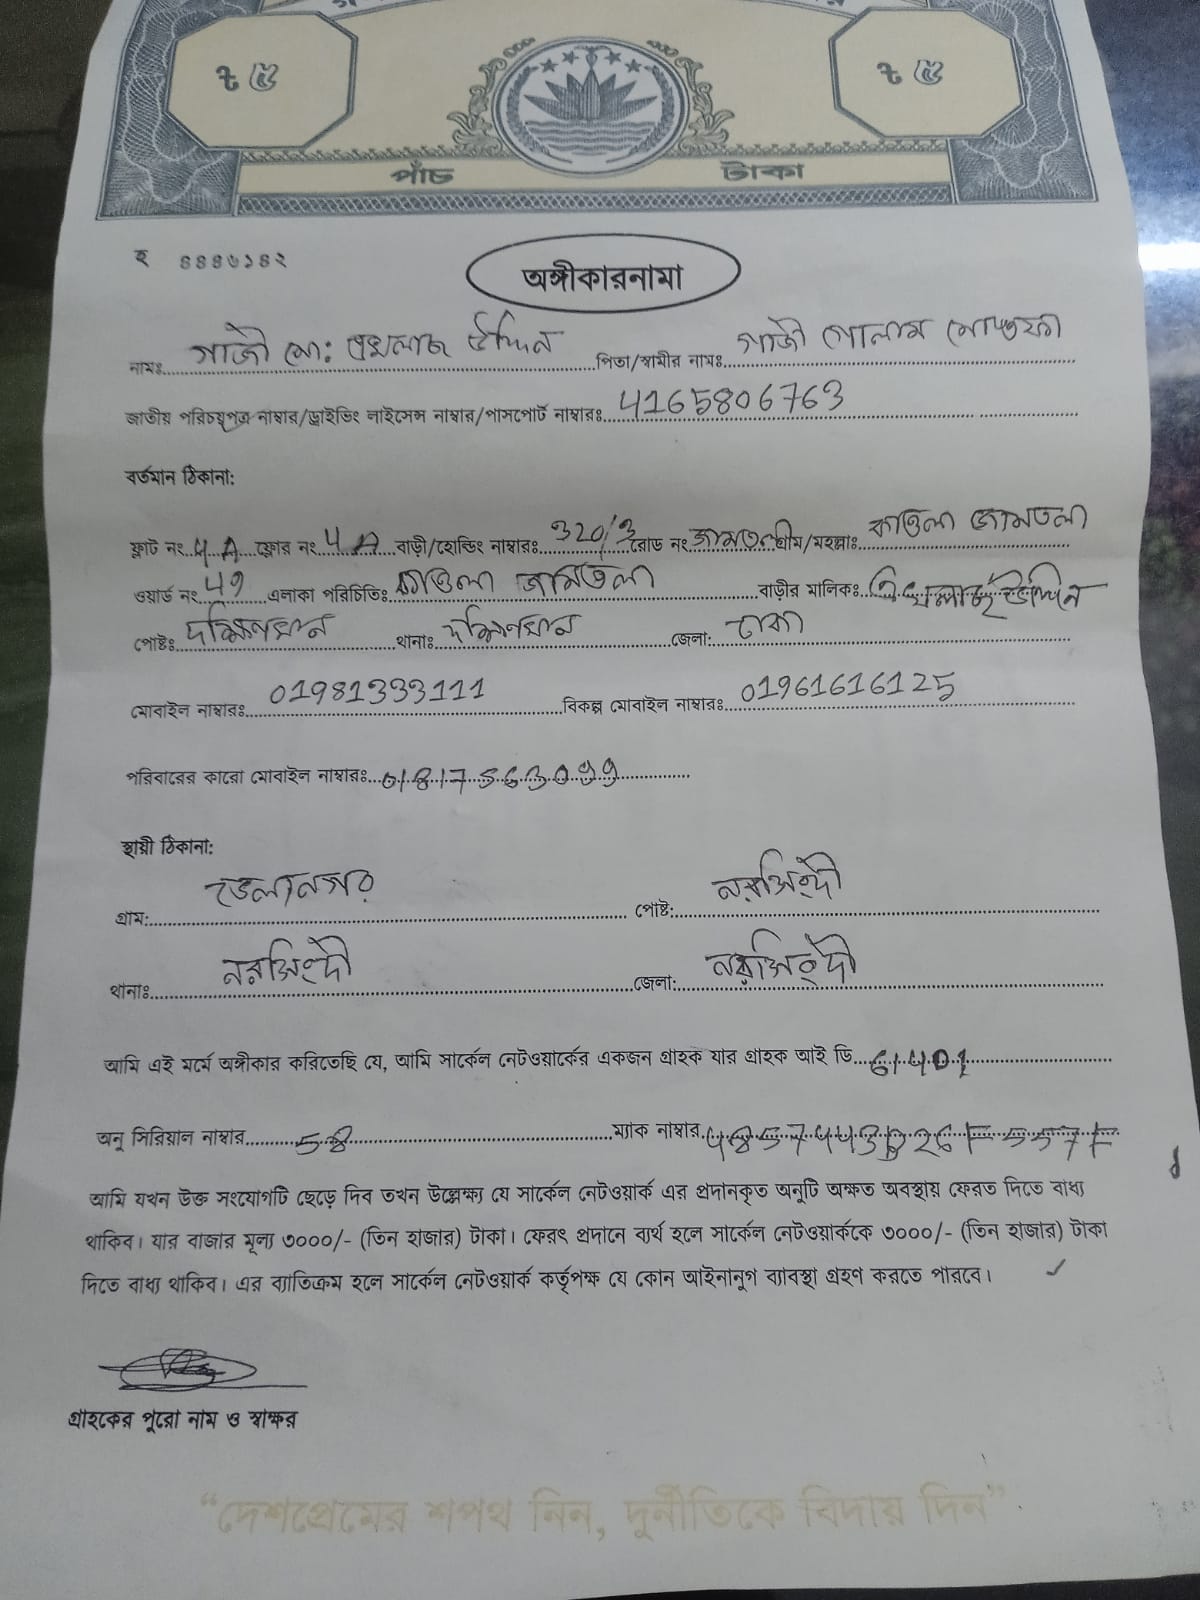 ৳ ৫ ৳ ৫
পাঁচ টাকা
৪৪৪৬১৪২
অঙ্গীকারনামা
নামঃ গাজী মো: উদ্দিন পিতা/স্বামীর নামঃ গাজী গোলাম মোস্তফা
জাতীয় পরিচয়পত্র নাম্বার/ড্রাইভিং লাইসেন্স নাম্বার/পাসপোর্ট নাম্বারঃ 4165806763
বর্তমান ঠিকানা:
ফ্লাট নং 4 A ফ্লোর নং 4 A বাড়ী/হোল্ডিং নাম্বারঃ 320/3 রোড নং জামতলা গ্রাম/মহল্লাঃ কাওলা জামতলা
ওয়ার্ড নং 49 এলাকা পরিচিতিঃ কাওলা জামতলা বাড়ীর মালিকঃ উদ্দিন
পোষ্টঃ দক্ষিনখান থানাঃ দক্ষিনখান জেলা: ঢাকা
মোবাইল নাম্বারঃ 01981333111 বিকল্প মোবাইল নাম্বারঃ 01961616125
পরিবারের কারো মোবাইল নাম্বারঃ 01817563099
স্থায়ী ঠিকানা:
গ্রাম: ভেলানগর পোষ্ট: নরসিংদী
থানাঃ নরসিংদী জেলা: নরসিংদী
আমি এই মর্মে অঙ্গীকার করিতেছি যে, আমি সার্কেল নেটওয়ার্কের একজন গ্রাহক যার গ্রাহক আই ডি 61401
অনু সিরিয়াল নাম্বার 58 ম্যাক নাম্বার
আমি যখন উক্ত সংযোগটি ছেড়ে দিব তখন উল্লেক্ষ্য যে সার্কেল নেটওয়ার্ক এর প্রদানকৃত অনুটি অক্ষত অবস্থায় ফেরত দিতে বাধ্য
থাকিব। যার বাজার মূল্য ৩০০০/- (তিন হাজার) টাকা। ফেরৎ প্রদানে ব্যর্থ হলে সার্কেল নেটওয়ার্ককে ৩০০০/- (তিন হাজার) টাকা
দিতে বাধ্য থাকিব। এর ব্যাতিক্রম হলে সার্কেল নেটওয়ার্ক কর্তৃপক্ষ যে কোন আইনানুগ ব্যাবস্থা গ্রহণ করতে পারবে।
গ্রাহকের পুরো নাম ও স্বাক্ষর
“দেশপ্রেমের শপথ নিন, দুর্নীতিকে বিদায় দিন”